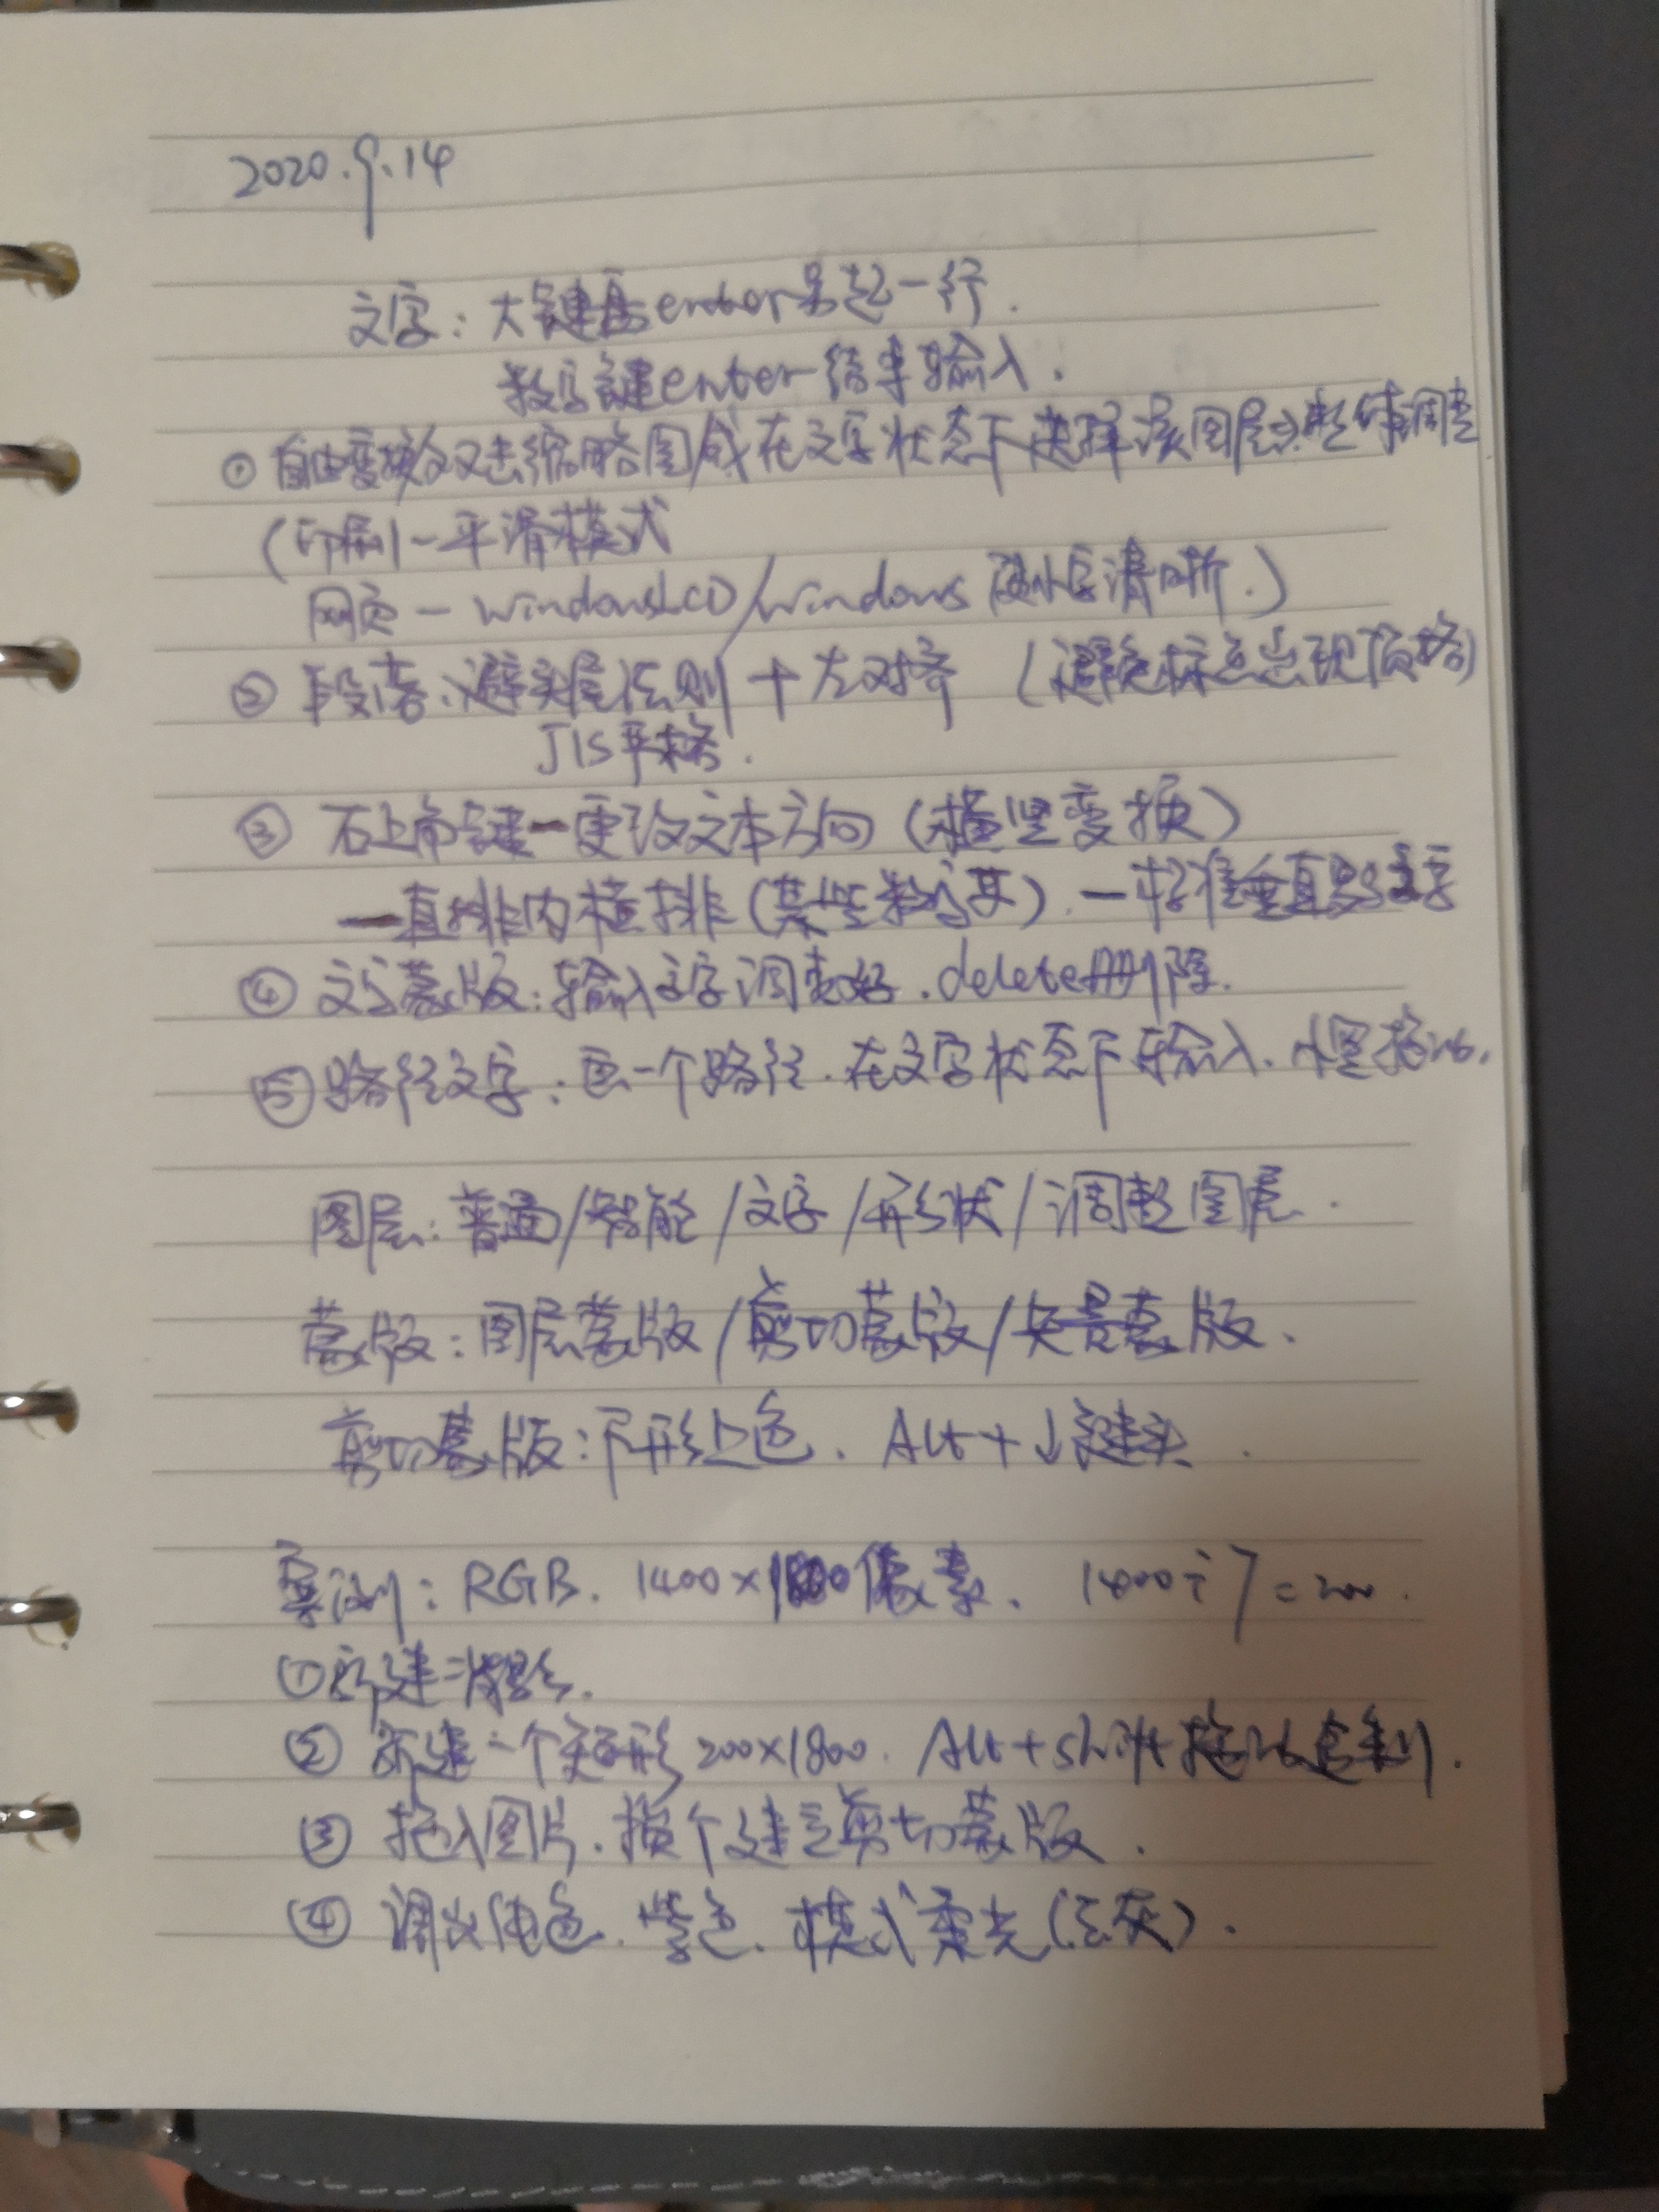 2020.9.14
文字：大键盘enter另起一行.
数字键enter结束输入.
① 自由变换/双击缩略图/或在文字状态下选择该图层→整体调整
(印刷—平滑模式
网页—windowsLCD/windows 小字清晰.)
② 段落:避头尾法则+左对齐 (避免标点出现顶格)
JIS严格.
③ 右上角键—更改文本方向(横竖变换)
—直排内横排(某些数字其).—标准垂直罗马文字
④ 文字蒙版:输入文字调整好.delete删除.
⑤ 路径文字:画一个路径.在文字状态下输入.
图层:普通/智能/文字/形状/调整图层.
蒙版:图层蒙版/剪切蒙版/矢量蒙版.
剪切蒙版:下形上色. Alt+↓键头.
案例:RGB. 1400×1800像素. 1400÷7=200.
①新建背景.
② 新建一个矩形200×1800. Alt+shift拖动复制.
③ 拖入图片.挨个建立剪切蒙版.
④ 调出纯色.紫色.模式柔光(去灰).